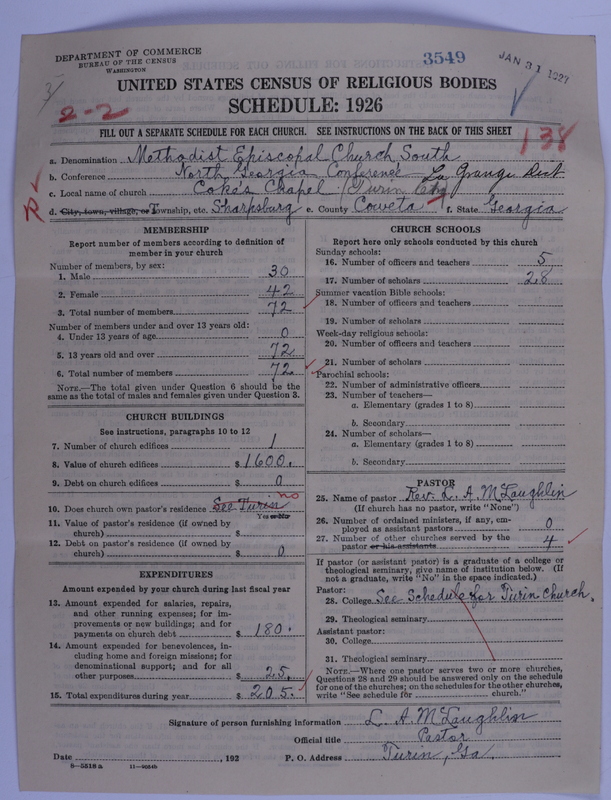 DEPARTMENT OF COMMERCE
BUREAU OF THE CENSUS
WASHINGTON
3549
JAN 31 1927
UNITED STATES CENSUS OF RELIGIOUS BODIES
SCHEDULE: 1926
2-2
138
FILL OUT A SEPARATE SCHEDULE FOR EACH CHURCH. SEE INSTRUCTIONS ON THE BACK OF THIS SHEET
a. Denomination Methodist Episcopal Church South
b. Conference North Georgia Conference La Grange Dist
c. Local name of church Coke's Chapel (Turin Chg)
d. City, town, village, or Township, etc. Sharpsburg e. County Coweta f. State Georgia
MEMBERSHIP
Report number of members according to definition of
member in your church
Number of members, by sex:
1. Male 30
2. Female 42
3. Total number of members 72
Number of members under and over 13 years old:
4. Under 13 years of age 0
5. 13 years old and over 72
6. Total number of members 72
NOTE.—The total given under Question 6 should be the
same as the total of males and females given under Question 3.
CHURCH BUILDINGS
See instructions, paragraphs 10 to 12
7. Number of church edifices 1
8. Value of church edifices $1600.
9. Debt on church edifices $ 0
10. Does church own pastor's residence See Turin no
Yes or No
11. Value of pastor's residence (if owned by
church) $
12. Debt on pastor's residence (if owned by
church) $ 0
EXPENDITURES
Amount expended by your church during last fiscal year
13. Amount expended for salaries, repairs,
and other running expenses; for im-
provements or new buildings; and for
payments on church debt $ 180.
14. Amount expended for benevolences, in-
cluding home and foreign missions; for
denominational support; and for all
other purposes $ 25.
15. Total expenditures during year $ 205.
CHURCH SCHOOLS
Report here only schools conducted by this church
Sunday schools:
16. Number of officers and teachers 5
17. Number of scholars 28
Summer vacation Bible schools:
18. Number of officers and teachers
19. Number of scholars
Week-day religious schools:
20. Number of officers and teachers
21. Number of scholars
Parochial schools:
22. Number of administrative officers
23. Number of teachers—
a. Elementary (grades 1 to 8)
b. Secondary
24. Number of scholars—
a. Elementary (grades 1 to 8)
b. Secondary
PASTOR
25. Name of pastor Rev. L. A. McLaughlin
(If church has no pastor, write "None")
26. Number of ordained ministers, if any, em-
ployed as assistant pastors 0
27. Number of other churches served by the
pastor or his assistants 4
If pastor (or assistant pastor) is a graduate of a college or
theological seminary, give name of institution below. (If
not a graduate, write "No" in the space indicated.)
Pastor:
28. College See Schedule for Turin church.
29. Theological seminary
Assistant pastor:
30. College
31. Theological seminary
NOTE.—Where one pastor serves two or more churches,
Questions 28 and 29 should be answered only on the schedule
for one of the churches; on the schedules for the other churches,
write "See schedule for ______ church."
Signature of person furnishing information L. A. McLaughlin
Official title Pastor
Date ______, 192 P. O. Address Turin, Ga.
8—5518a 11—9054b